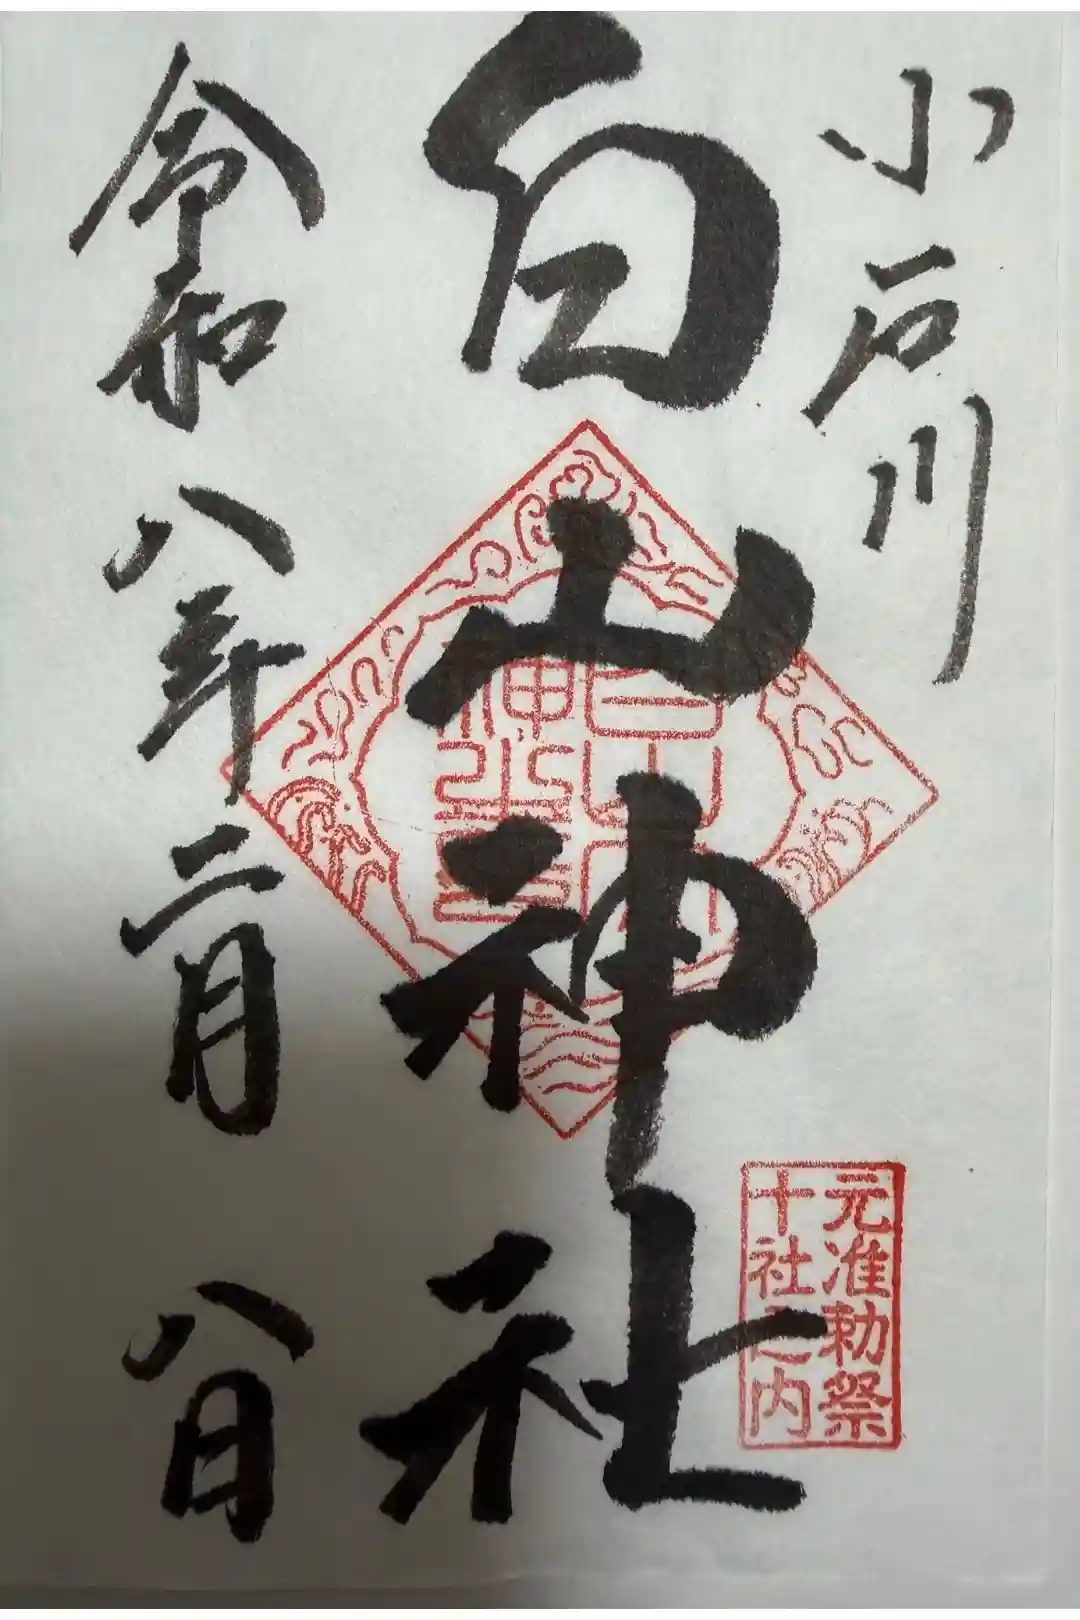 小石川
白山神社
元准勅祭
十社之内
令和八年二月八日